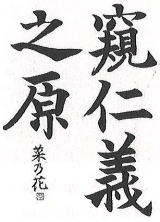 窺仁義
之原
菜乃花